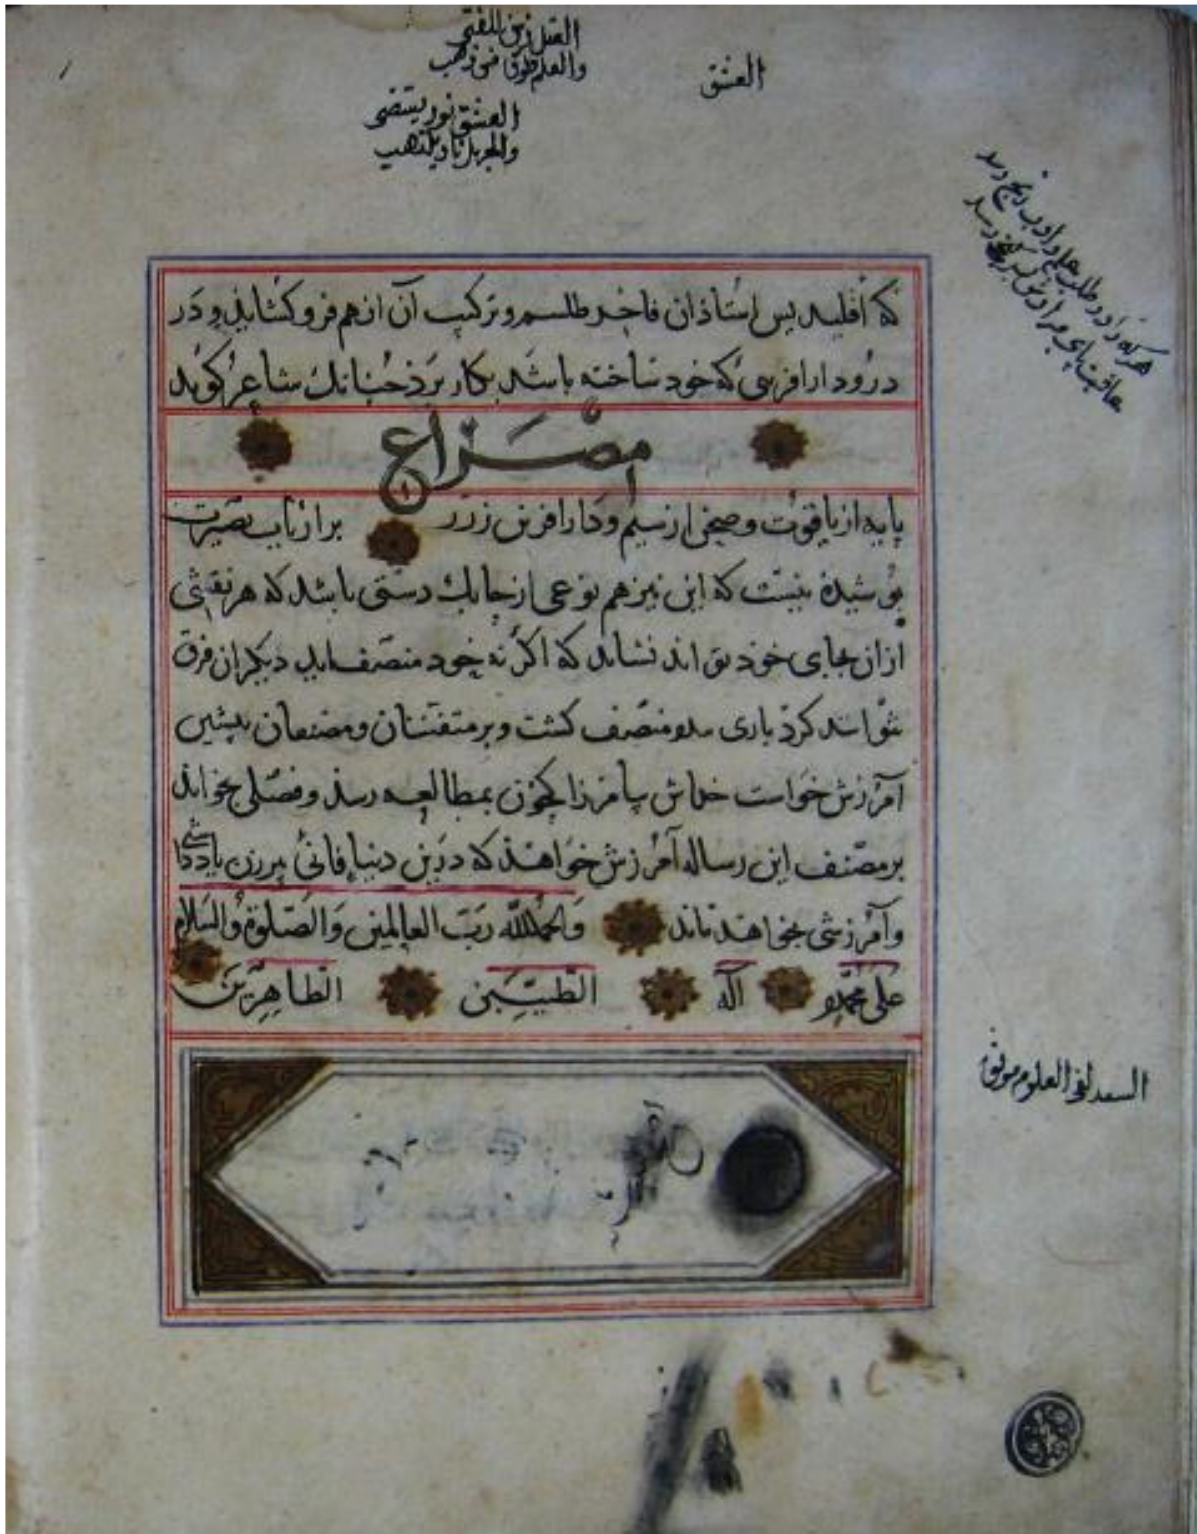 العقل زين للفتى
والعلم طوق من ذهب
العشق نور يستضى
والجهل نار يلتهب
العشق
هر که دارد طلب علم و ادب رنج رسد
عاقبت پای مرادش بر گنج رسد
که اقلیدیس استاذ ان فاخر طلسم و ترکیب آن از هم فرو کشاید و در
درو دارافزینی که خود ساخته باشد بکار برذ چنانک شاعر کوید
مصراع
پایه از یاقوت و صحن از سیم و دارافزین ززر بر ارباب بصیرت
پوشیده نیست که این نیز هم نوعی از چابک دستی باشد که هر نقشی
از ان بجای خوذ تواند نشاند که اکر نه خود منصف اید دیکران فرق
توانند کرد باری منصف کشت و بر متفننان و مصنفان پیشین
آمرزش خواست خداش بیامرزاد که چون بمطالعه رسذ و فصلی بخواند
بر مصنف این رساله آمرزش خواهند که درین دنیا فانی برین یاد
و آمرزشی بخواهد ماند والحمد لله رب العالمین والصلوة والسلام
علی محمد و آله الطیبین الطاهرین
السعد لفى العلوم موثق